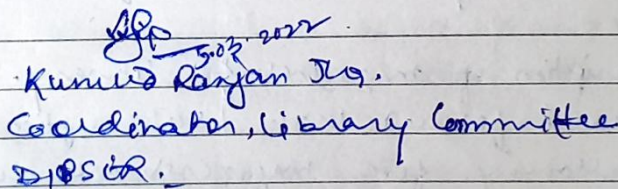 5.03.2022
Kumud Ranjan Jha.
Coordinator, Library Committee
DIPSER.